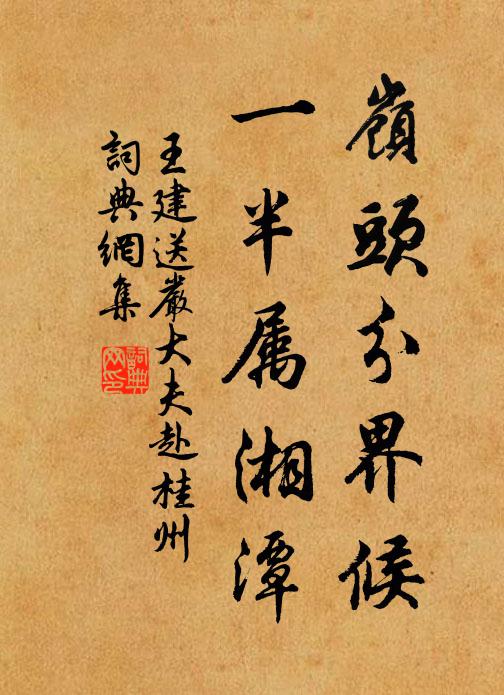 嶺頭分界候
一半属湘潭
王建送嚴大夫赴桂州
詞典網集
詞典
网印